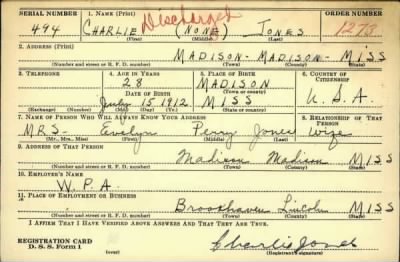 SERIAL NUMBER 1. NAME (Print) ORDER NUMBER
494 CHARLIE Discharged (NONE) JONES 1273
(First) (Middle) (Last)
2. ADDRESS (Print)
MADISON- MADISON- MISS
(Number and street or R. F. D. number) (Town) (County) (State)
3. TELEPHONE 4. AGE IN YEARS 5. PLACE OF BIRTH 6. COUNTRY OF CITIZENSHIP
28 MADISON
DATE OF BIRTH (Town or county)
July 15 1912 MISS U.S.A.
(Exchange) (Number) (Mo.) (Day) (Yr.) (State or country)
7. NAME OF PERSON WHO WILL ALWAYS KNOW YOUR ADDRESS 8. RELATIONSHIP OF THAT PERSON
MRS- Evalyn Perry Jones Wife
(Mr., Mrs., Miss) (First) (Middle) (Last)
9. ADDRESS OF THAT PERSON
Madison Madison MISS
(Number and street or R. F. D. number) (Town) (County) (State)
10. EMPLOYER'S NAME
W.P.A.
11. PLACE OF EMPLOYMENT OR BUSINESS
Brookhaven Lincoln MISS
(Number and street or R. F. D. number) (Town) (County) (State)
I AFFIRM THAT I HAVE VERIFIED ABOVE ANSWERS AND THAT THEY ARE TRUE.
REGISTRATION CARD
D. S. S. Form 1 Charlie Jones
(Registrant's signature)